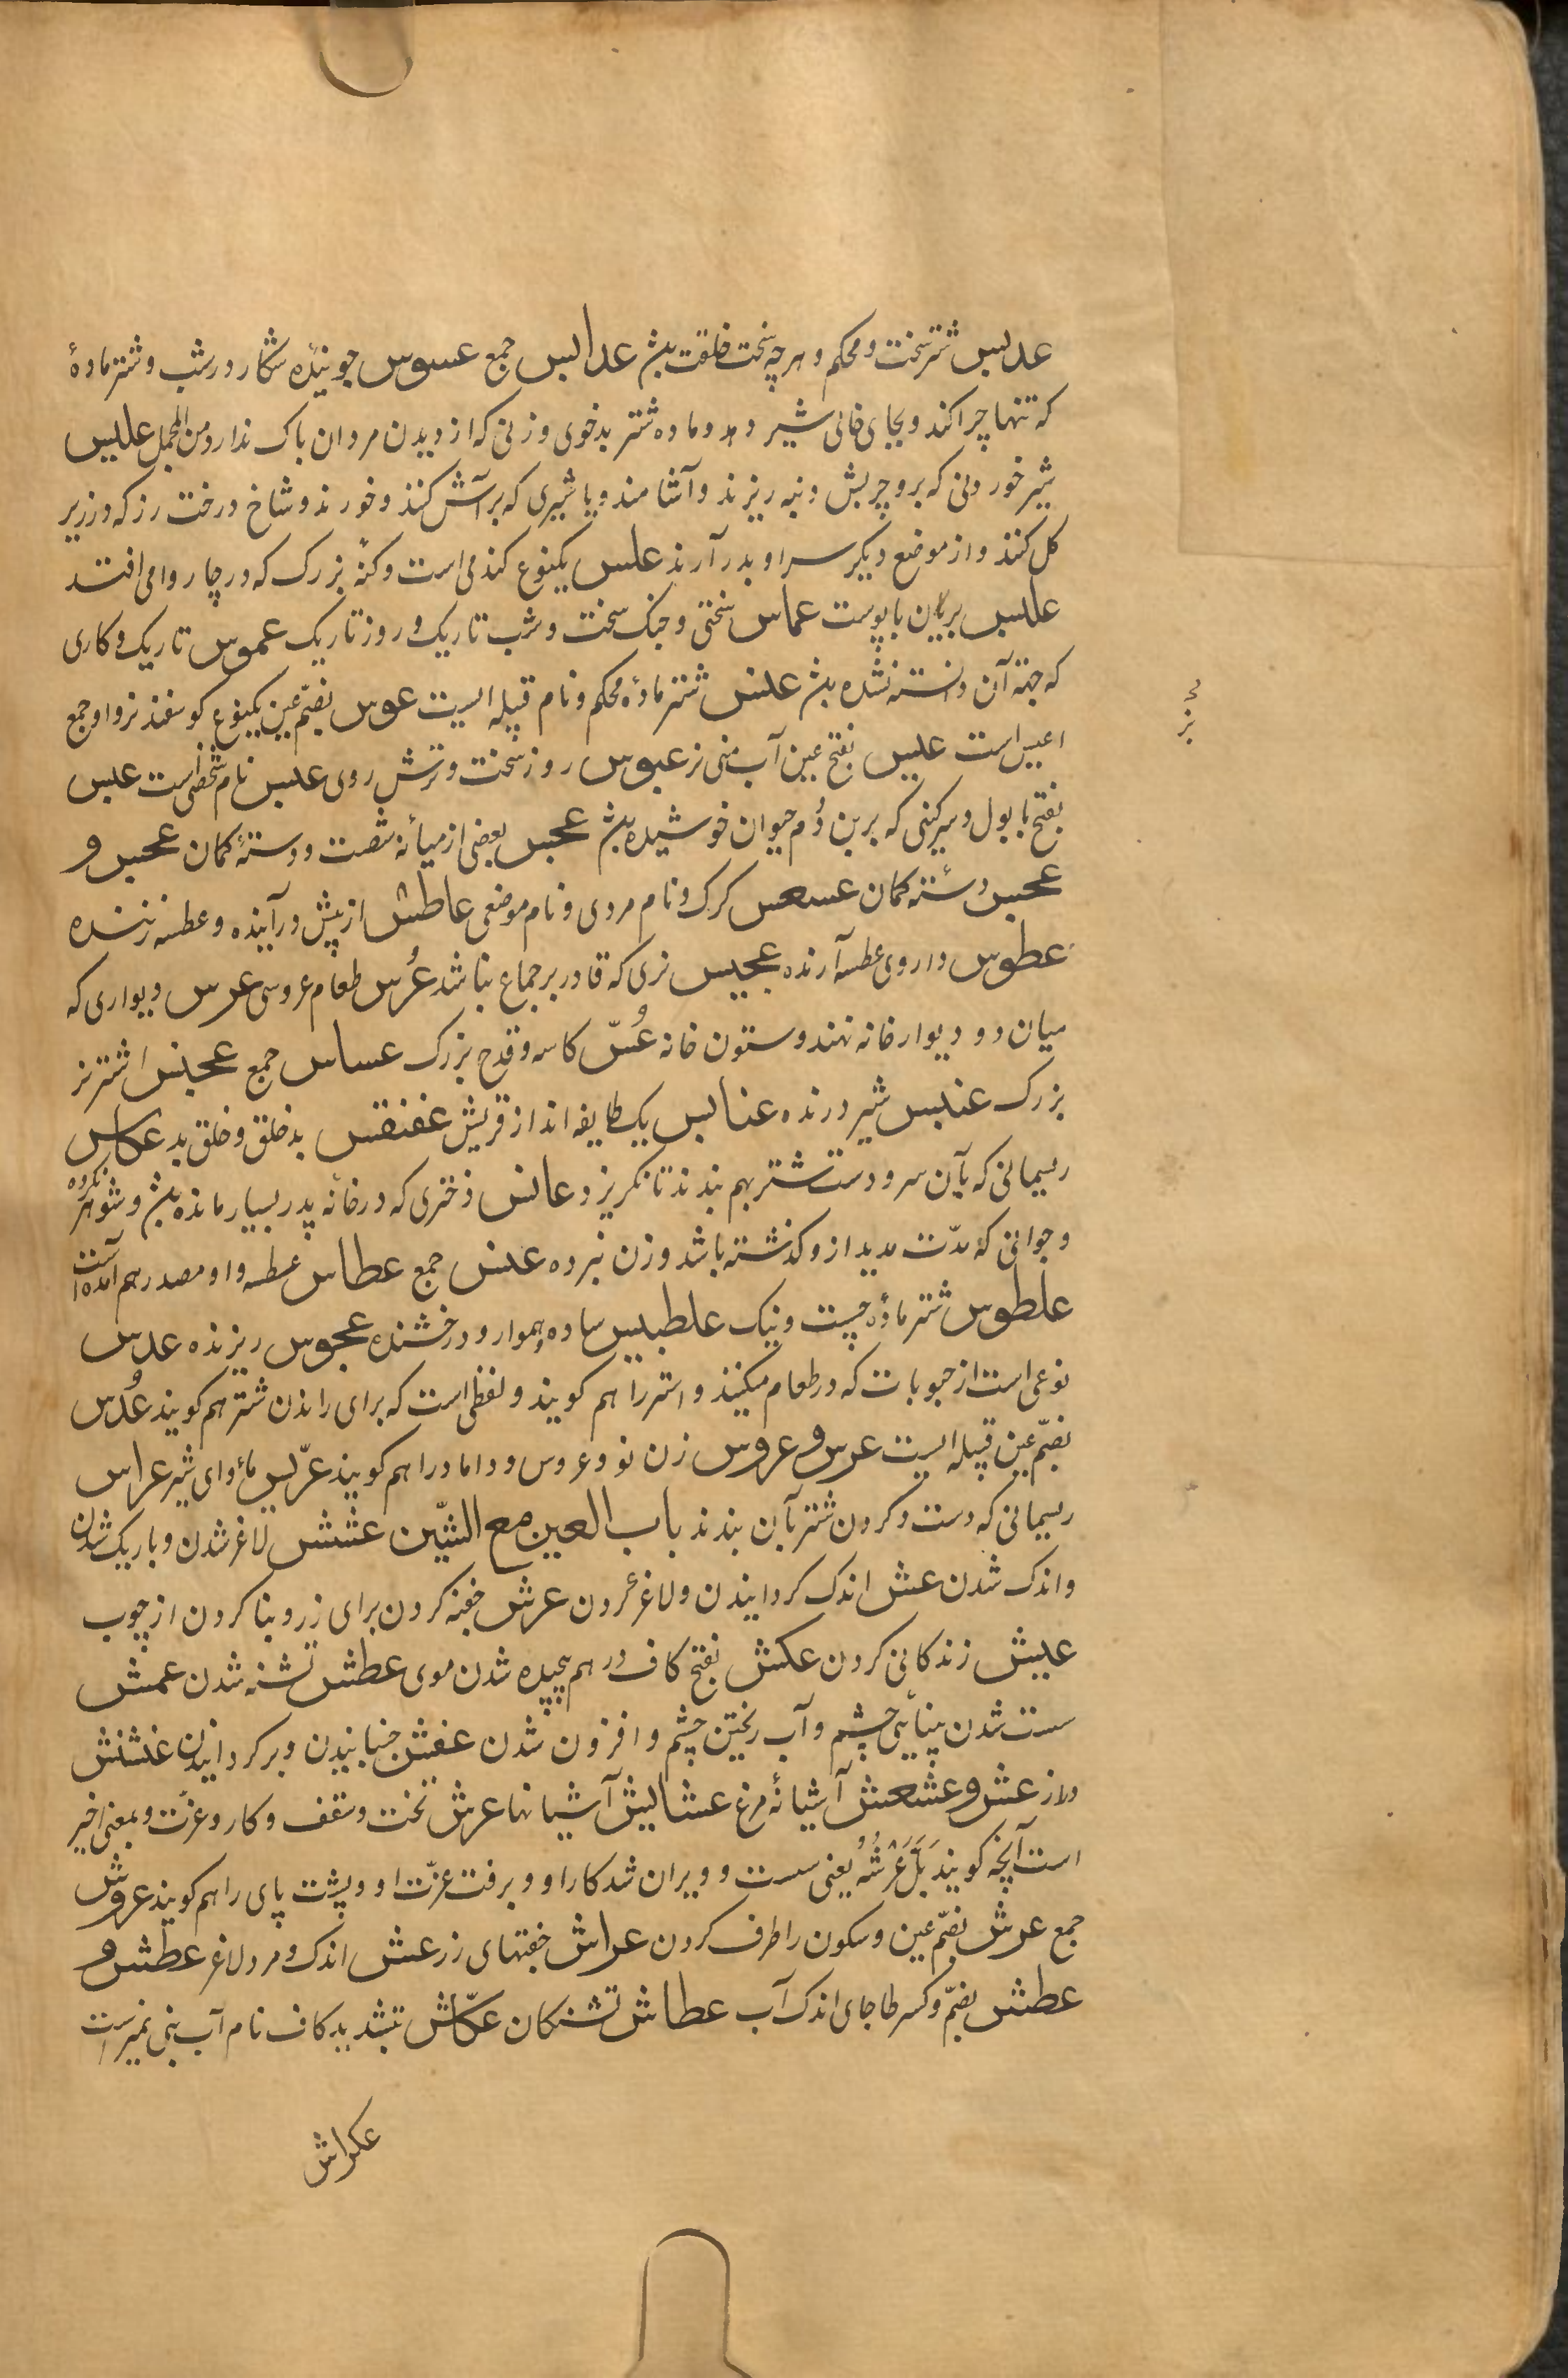 عدبس شتر سخت و محکم و هر چه سخت خلقت بشد عدابس جمع عسوس جوینده شکار در شب و شتر ماده
که تنها چرا کند و بجای خالی شیر دهد و ماده شتر بدخوی و زنی که از دیدن مردان باک ندارد و من المجمل علیس
شیر خوردنی که برو چربش دنبه ریزند و آشامند و یا شیری که بر آش کنند و خورند و شاخ درخت رز که در زیر
کل کنند و از موضع دیکر سر او بدر آرند علس یکنوع کندمی است و کنهٔ بزرک که در چاروا می افتد
علیس بریان با پوست عماس سختی و جنک سخت و شب تاریک و روز تاریک عموس تاریک و کاری
که جهة آن دانسته نشده بشد عنس شتر مادهٔ محکم و نام قبیله ایست عوس بضمّ عین یکنوع کوسفند نر و او جمع
اعیس است عیس بفتح عین آب منی نر عبوس روز سخت و ترش روی عبس نام شخصی است عبس
بفتح با بول و سرکینی که برین دُم حیوان خوشیده بشد عجس بعضی از میانهٔ شصت و دستهٔ کمان عجس و
عجس دستهٔ کمان عسعس کرک و نام مردی و نام موضعی عاطس از پیش در آینده و عطسه زننده
عطوس داروی عطسه آرنده عجیس نری که قادر بر جماع نباشد عُرس طعام عروسی عرس دیواری که
میان دو دیوار خانه نهند و ستون خانه عُسّ کاسه و قدح بزرک عساس جمع عجنس اشتر نر
بزرک عنبس شیر درنده عنابس یک طایفه اند از قریش عفنقس بد خلق و خلق بد عکاس
ریسمانی که بآن سر و دست شتر بهم بندند تا نکریزد عانس دختری که در خانهٔ پدر بسیار مانده بشد و شوهر نکرده
و جوانی که مدّت مدید ازو کذشته باشد و زن نبرده عنس جمع عطاس عطسه و او مصدر هم آمده است
علطوس شتر مادهٔ چست و نیک علطبیس ساده و هموار و درخشنده عجوس ریزنده عدس
نوعی است از حبوبات که در طعام میکنند و استر را هم کویند و لفظی است که برای راندن شتر هم کویند عُدس
بضمّ عین قبیله ایست عرس و عروس زن نو و عروس و داماد را هم کویند عرّیس مأوای شیر عراس
ریسمانی که دست و کردن شتر بآن بندند باب العین مع الشّین عشش لاغر شدن و باریک شدن
و اندک شدن عش اندک کردانیدن و لاغر کردن عرش خفته کردن برای رز و بنا کردن از چوب
عیش زندکانی کردن عکش بفتح کاف درهم پیچیده شدن موی عطش تشنه شدن عمش
سست شدن بینائی چشم و آب ریختن چشم و افزون شدن عفش جنبانیدن و برکردانیدن عنشنش
دراز عش و عشعش آشیانهٔ مرغ عشایش آشیانها عرش تخت و سقف و کار و عزّت و بمعنی اخیر
است آنچه کویند ثَلَّ عَرْشُهُ یعنی سست و ویران شد کار او و برفت عزّت او و پشت پای را هم کویند عروش
جمع عرش بضمّ عین و سکون را طرف کردن عراش خفتهای رز عش اندک و مرد لاغر عطش و
عطش بضمّ و کسر طا جای اندک آب عطاش تشنکان عکّاش بتشدید کاف نام آب بنی نمیر است
عکراش